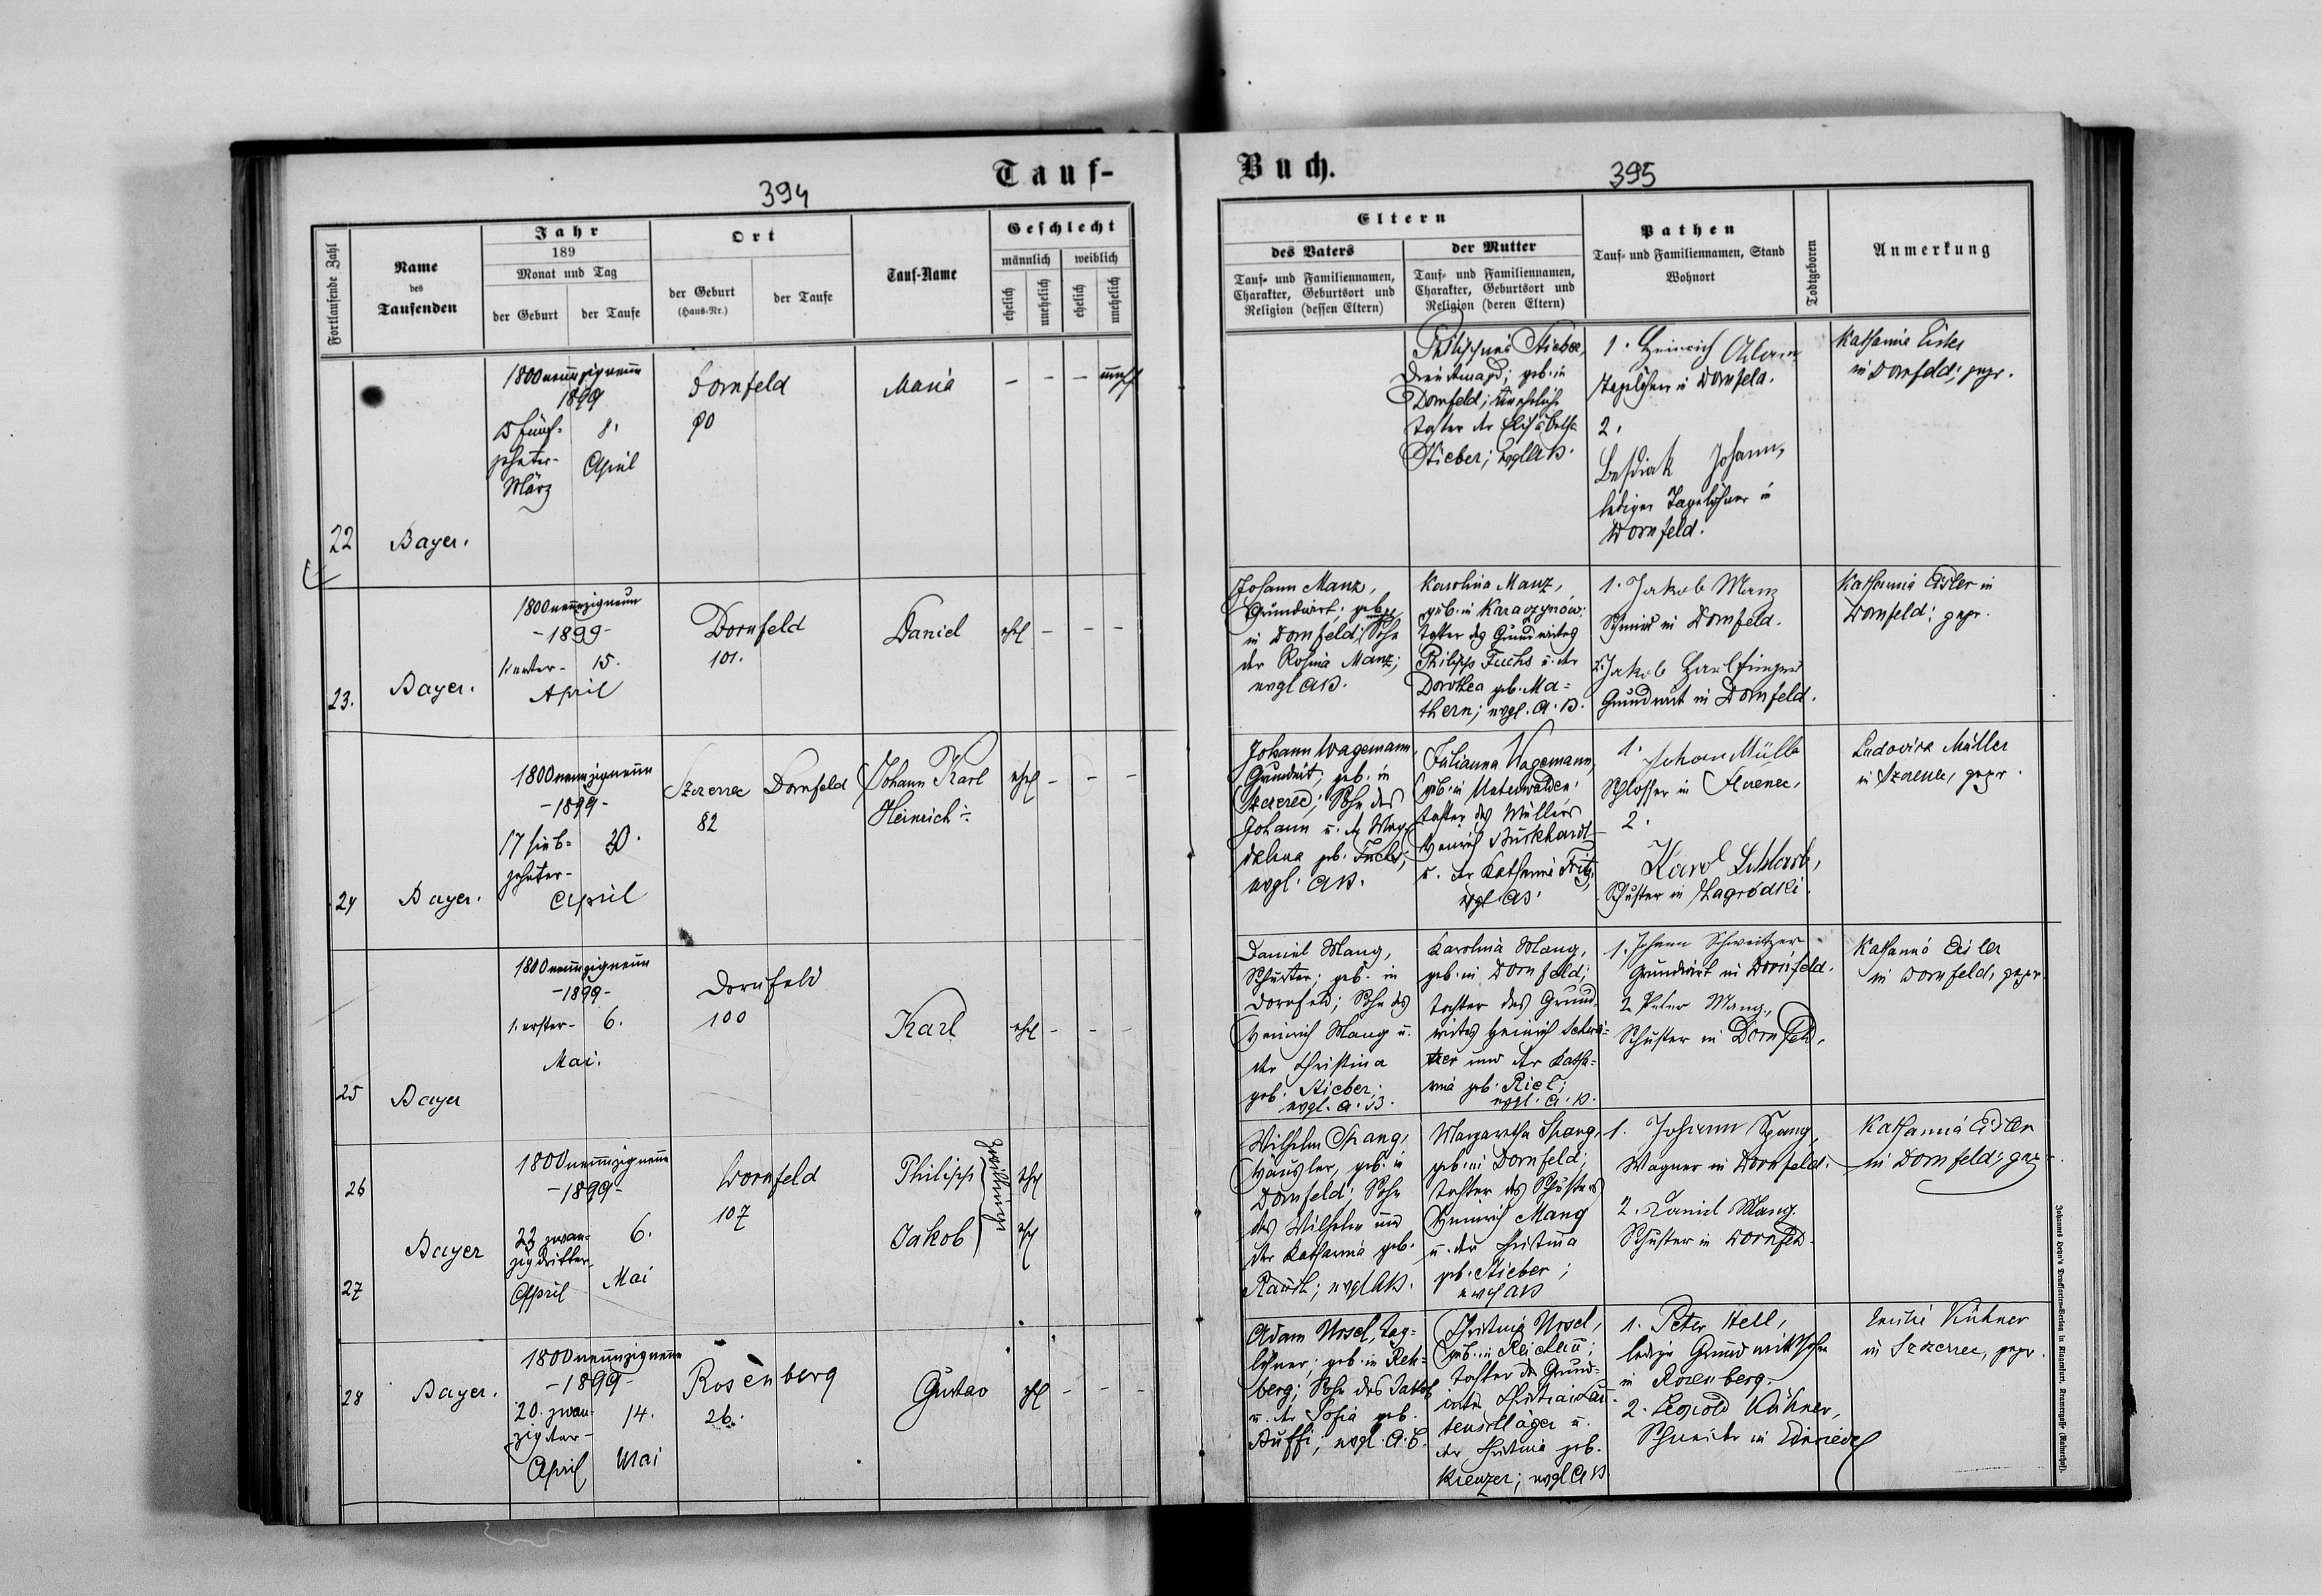 394
Tauf-
Fortlaufende Zahl
Name
des
Taufenden
Jahr
189
Monat und Tag
der Geburt
der Taufe
Ort
der Geburt
(Haus-Nr.)
der Taufe
Tauf-Name
Geschlecht
männlich
weiblich
ehelich
unehelich
ehelich
unehelich
22
Bayer.
1800neunzigneun
1899
15 fünf-
zehnter-
März
8.
April
Dornfeld
90
Maria
- - - unehl
23.
Bayer.
1800neunzigneun
-1899-
1 erster-
15.
April
Dornfeld
101.
Daniel
ehl - - -
24
Bayer.
1800neunzigneun
-1899-
17 sieb-
zehnter-
30.
April
Szczerzec
82
Dornfeld
Johann Karl
Heinrich
ehl - - -
25
Bayer
1800neunzigneun
-1899-
1. erster-
6.
Mai.
Dornfeld
100
Karl
ehl - - -
26
27
Bayer
1800neunzigneun
-1899-
23 zwan-
zigdritter-
April
6.
Mai
Dornfeld
107
Philipp
Jakob
Zwillinge
ehl
ehl
28
Bayer.
1800neunzigneun
-1899-
20. zwan-
zigster-
April
14.
Mai
Rosenberg
26.
Gustav
ehl - - -
Buch.
395
Eltern
des Vaters
Tauf- und Familiennamen,
Charakter, Geburtsort und
Religion (dessen Eltern)
der Mutter
Tauf- und Familiennamen,
Charakter, Geburtsort und
Religion (deren Eltern)
Pathen
Tauf- und Familiennamen, Stand
Wohnort
Todtgeboren
Anmerkung
Philippine Stieber,
Dienstmagd; geb. in
Dornfeld; uneheliche
Tochter der Elisabetha
Stieber; evgl AB.
1. Heinrich Adam
Tagelöhner in Dornfeld.
2.
Johann,
lediger Tagelöhner in
Dornfeld.
Katharina Eisler
in Dornfeld; gepr.
Johann Manz,
Grundwirt; geb.
in Dornfeld; Sohn
der Rosina Manz;
evgl AB.
Karolina Manz,
geb. in Karaczynów;
Tochter des Grundwirtes
Philipp Fuchs u. der
Dorothea geb. Ma-
thern; evgl. A. B.
1. Jakob Manz
Schmied in Dornfeld.
2. Jakob Harlfinger
Grundwirt in Dornfeld.
Katharina Eisler in
Dornfeld; gepr.
Johann Wagemann,
Grundwirt, geb. in
Szczerzec; Sohn des
Johann u. der Mag-
dalena geb. Fuchs;
evgl. AB.
Julianna Wagemann,
geb. in Unterwalden;
Tochter des Müllers
Heinrich Burkhardt
u. der Katharina Fritz,
evgl AB.
1.
Johan Müller
Schlosser in
2.
Karol
Schuster in Zagródki.
Ludovika Müller
in Szczerzec, gepr.
Daniel Mang,
Schuster; geb. in
Dornfeld; Sohn des
Heinrich Mang u.
der Christina
geb. Stieber;
evgl. A. B.
Karolina Mang,
geb. in Dornfeld;
Tochter des Grund-
wirtes Heinrich Schwei-
tzer und der Katha-
rina geb. Riel;
evgl. A. B.
1. Johann Schweitzer
Grundwirt in Dornfeld.
2. Peter Mang,
Schuster in Dornfeld.
Katharina Eisler
in Dornfeld, gepr.
Wilhelm Spang,
Häusler, geb. in
Dornfeld; Sohn
des Wilhelm und
der Katharina geb.
evgl AB.
Margaretha Spang,
geb. in Dornfeld;
Tochter des Schusters
Heinrich Mang
u. der Christina
geb. Stieber;
evgl AB
1. Johann Spang,
Wagner in Dornfeld.
2. Daniel Mang.
Schuster in Dornfeld.
Katharina Eisler
in Dornfeld, gepr.
Adam Ursel, Tag-
löhner; geb. in Reh-
berg; Sohn des Jakob
u. der Sofia geb.
Buffi; evgl. A. B.
Christina Ursel,
geb. in
Tochter des Grund-
wirts Christian Lau-
tenschläger u.
der Christina geb.
Kreuzer; evgl AB.
1. Peter Hell,
lediger Grundwirtssohn
in Rosenberg.
2. Leopold Kühner,
Schneider in Einsiedel
Emilie Kühner
in Szczerzec, gepr.
Johannes Heyn's Drucksorten-Verlag in Klagenfurt, Kramergasse (Rainerhof).